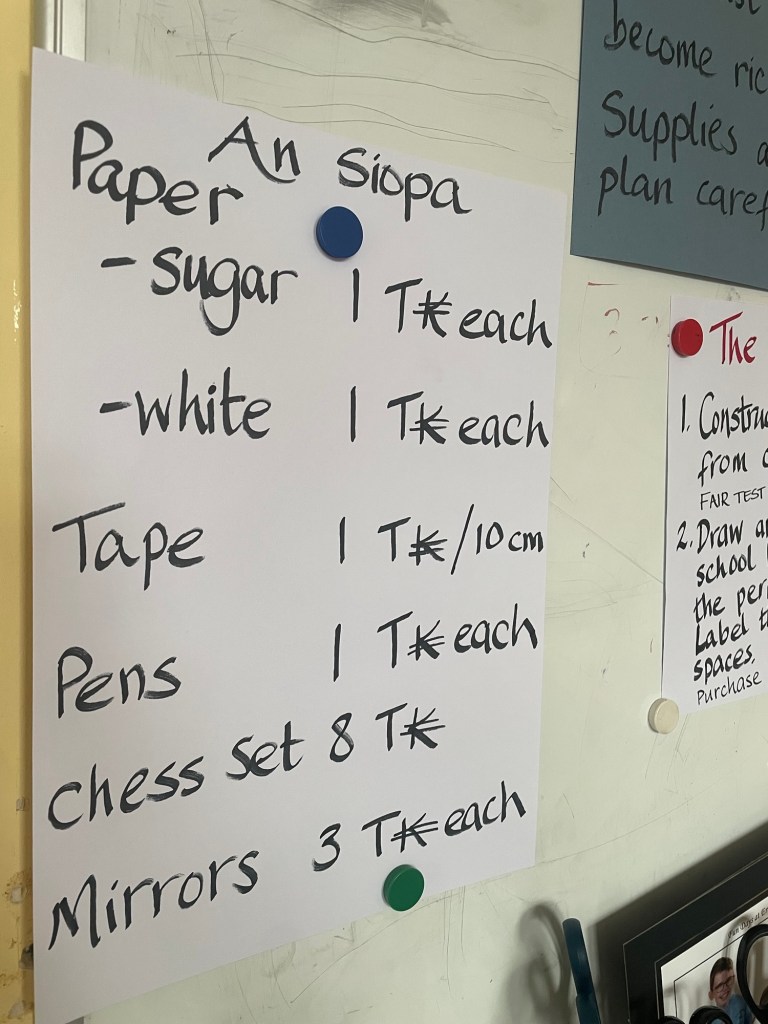 An Siopa
Paper
- sugar 1 T₭ each
- white 1 T₭ each
Tape 1 T₭/10 cm
Pens 1 T₭ each
Chess Set 8 T₭
Mirrors 3 T₭ each
become
Supplies
plan
The
1. Construc
from
FAIR TEST
2. Draw
school
the
Label
spaces.
Purchase